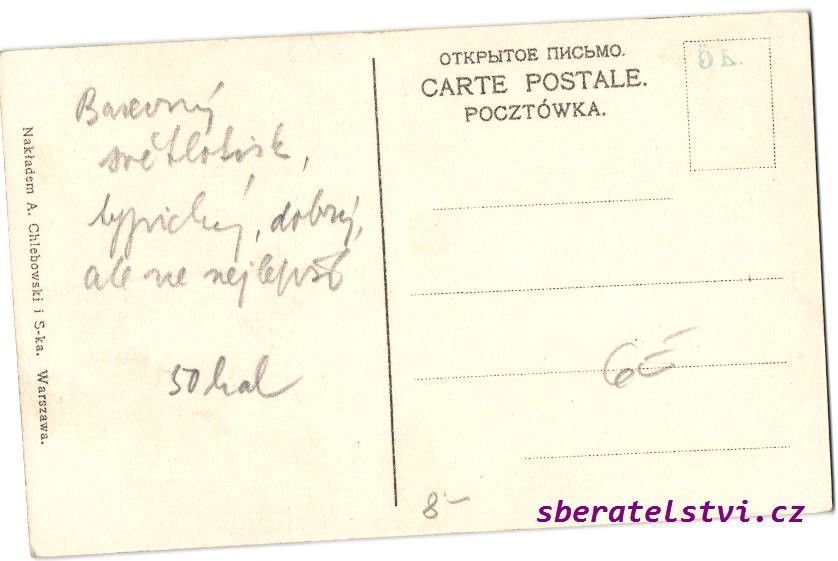 ОТКРЫТОЕ ПИСЬМО.
CARTE POSTALE.
POCZTÓWKA.
Barevný
světlotisk,
typický, dobrý,
ale ne nejlepší
50 hal
Nakładem A. Chlebowski i S-ka. Warszawa.
6
8-
sberatelstvi.cz